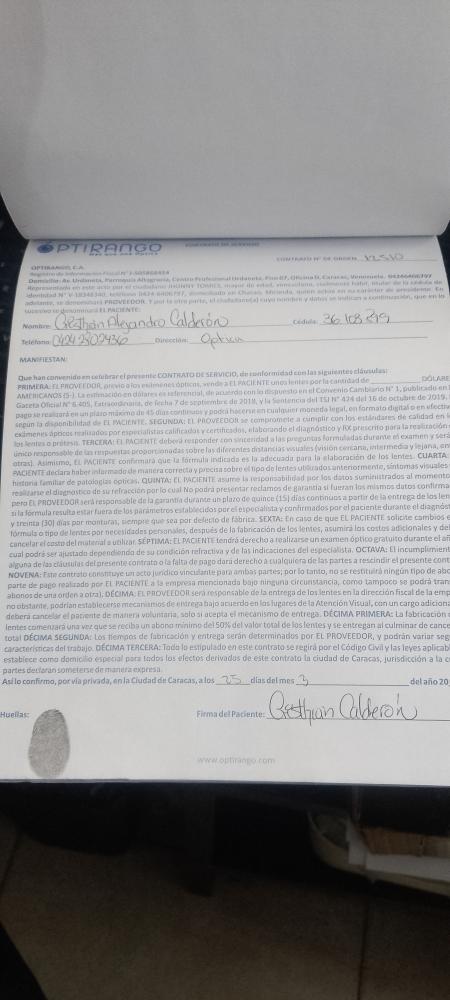 OPTIRANGO
CONTRATO DE SERVICIO
CONTRATO N° DE ORDEN 12510
OPTIRANGO, C.A.
Registro de Información Fiscal N°
Domicilio: Av. Urdaneta, Parroquia Altagracia, Centro Profesional Urdaneta, Piso 07, Oficina Caracas, Venezuela.
Representada en este acto por el ciudadano JHONNY TORRES, mayor de edad, venezolano, civilmente hábil, titular de la cédula de
identidad N° teléfono domiciliado en Chacao, Miranda, quien actúa en su carácter de presidente. En
adelante, se denominará PROVEEDOR. Y por la otra parte, el ciudadano(a) cuyo nombre y datos se indican a continuación, que en lo
sucesivo se denominará EL PACIENTE:
Nombre: Cristhian Alejandro Calderón Cédula: 36.108.
Teléfono: Dirección: Optica
MANIFIESTAN:
Que han convenido en celebrar el presente CONTRATO DE SERVICIO, de conformidad con las siguientes cláusulas:
PRIMERA: EL PROVEEDOR, previo a los exámenes ópticos, vende a EL PACIENTE unos lentes por la cantidad de DÓLARE
AMERICANOS ($-). La estimación en dólares es referencial, de acuerdo con lo dispuesto en el Convenio Cambiario N° 1, publicado en
Gaceta Oficial N° 6.405, Extraordinaria, de fecha 7 de septiembre de 2018, y la Sentencia del TSJ N° 424 del 16 de octubre de 2019.
pago se realizará en un plazo máximo de 45 días continuos y podrá hacerse en cualquier moneda legal, en formato digital o en efectiv
según la disponibilidad de EL PACIENTE. SEGUNDA: EL PROVEEDOR se compromete a cumplir con los estándares de calidad en
exámenes ópticos realizados por especialistas calificados y certificados, elaborando el diagnóstico y RX prescrito para la realización
los lentes o prótesis. TERCERA: EL PACIENTE deberá responder con sinceridad a las preguntas formuladas durante el examen y será
único responsable de las respuestas proporcionadas sobre las diferentes distancias visuales (visión cercana, intermedia y lejana, en
otras). Asimismo, EL PACIENTE confirmará que la fórmula indicada es la adecuada para la elaboración de los lentes. CUARTA:
PACIENTE declara haber informado de manera correcta y precisa sobre el tipo de lentes utilizados anteriormente, síntomas visuales
historia familiar de patologías ópticas. QUINTA: EL PACIENTE asume la responsabilidad por los datos suministrados al momento
realizarse el diagnostico de su refracción por lo cual No podrá presentar reclamos de garantía si fueran los mismos datos confirma
pero EL PROVEEDOR será responsable de la garantía durante un plazo de quince (15) días continuos a partir de la entrega de los len
si la fórmula resulta estar fuera de los parámetros establecidos por el especialista y confirmados por el paciente durante el diagnóst
y treinta (30) días por monturas, siempre que sea por defecto de fábrica. SEXTA: En caso de que EL PACIENTE solicite cambios e
fórmula o tipo de lentes por necesidades personales, después de la fabricación de los lentes, asumirá los costos adicionales y de
cancelar el costo del material a utilizar. SÉPTIMA: EL PACIENTE tendrá derecho a realizarse un examen óptico gratuito durante el añ
cual podrá ser ajustado dependiendo de su condición refractiva y de las indicaciones del especialista. OCTAVA: El incumplimient
alguna de las cláusulas del presente contrato o la falta de pago dará derecho a cualquiera de las partes a rescindir el presente cont
NOVENA: Este contrato constituye un acto jurídico vinculante para ambas partes; por lo tanto, no se restituirá ningún tipo de abo
parte de pago realizado por EL PACIENTE a la empresa mencionada bajo ninguna circunstancia, como tampoco se podrá tran
abonos de una orden a otra). DÉCIMA: EL PROVEEDOR será responsable de la entrega de los lentes en la dirección fiscal de la emp
no obstante, podrían establecerse mecanismos de entrega bajo acuerdo en los lugares de la Atención Visual, con un cargo adiciona
deberá cancelar el paciente de manera voluntaria, solo si acepta el mecanismo de entrega. DÉCIMA PRIMERA: La fabricación
lentes comenzará una vez que se reciba un abono mínimo del 50% del valor total de los lentes y se entregan al culminar de cance
total DÉCIMA SEGUNDA: Los tiempos de fabricación y entrega serán determinados por EL PROVEEDOR, y podrán variar seg
características del trabajo. DÉCIMA TERCERA: Todo lo estipulado en este contrato se regirá por el Código Civil y las leyes aplicab
establece como domicilio especial para todos los efectos derivados de este contrato la ciudad de Caracas, jurisdicción a la c
partes declaran someterse de manera expresa.
Así lo confirmo, por vía privada, en la Ciudad de Caracas, a los 25 días del mes 3 del año 20
Huellas: Firma del Paciente: Cristhian Calderón
www.optirango.com